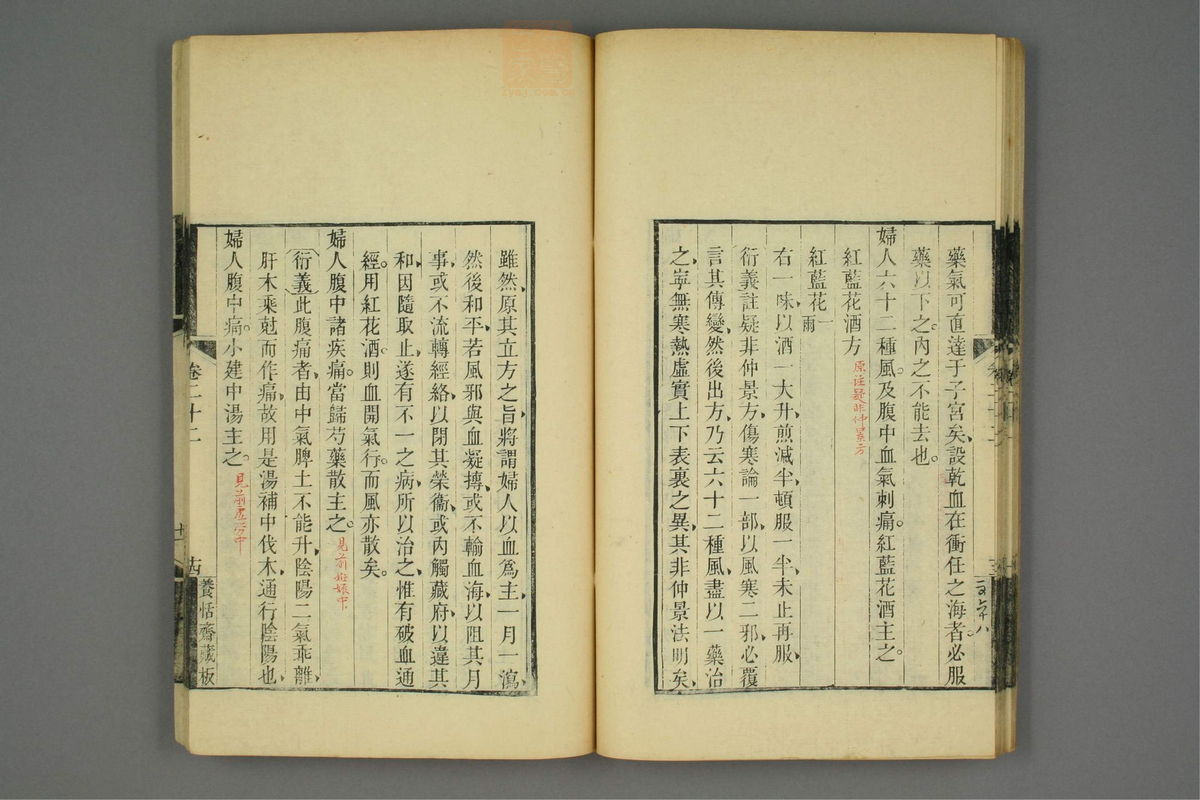 藥氣可直達于子宮矣、設乾血在衝任之海者。必服
藥以下之。內之不能去也。
婦人六十二種風及腹中血氣刺痛。紅藍花酒主之。
紅藍花酒方 原注疑非仲景方
紅藍花一兩
右一味、以酒一大升、煎減半、頓服一半、未止再服、
衍義註疑非仲景方、傷寒論一部、以風寒二邪、必覆
言其傳變、然後出方、乃云六十二種風、盡以一藥治
之、寧無寒熱虛實上下表裏之異、其非仲景法明矣、
雖然、原其立方之旨、將謂婦人以血為主、一月一瀉、
然後和平、若風邪與血凝摶、或不輸血海、以阻其月
事、或不流轉經絡、以閉其榮衞、或內觸藏府、以違其
和、因隨取止、遂有不一之病、所以治之、惟有破血通
經。用紅花酒。則血開氣行。而風亦散矣。
婦人腹中諸疾痛。當歸芍藥散主之。 見前妊娠中
衍義此腹痛者、由中氣脾土不能升、陰陽二氣乖離、
肝木乘尅而作痛、故用是湯補中伐木、通行陰陽也、
婦人腹中痛。小建中湯主之。 見前虛勞中
卷二十二
十四
養恬齋藏板